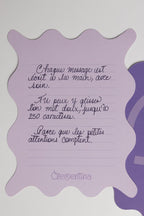 Chaque message est
écrit à la main, avec
soin.
Tu peux y glisser
ton mot doux, jusqu'à
250 caractères.
Parce que les petites
attentions comptent.
Clementine